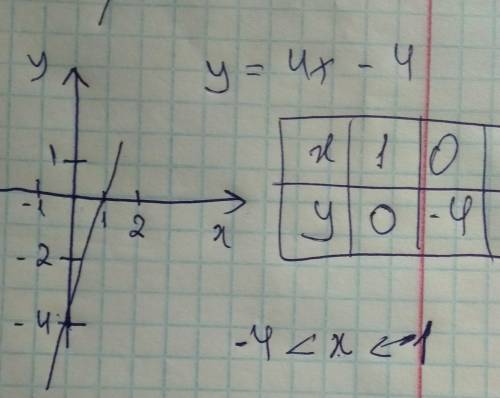 y
y = 4x - 4
1
-1 1 2
x
-2
-4
x 1 0
y 0 -4
-4 < x <